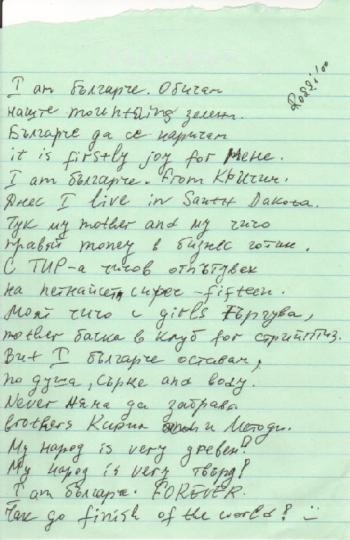 Rossi '00
I am българче. Обичам
наште mountтing зелени.
Българче да се наричам
it is firstly joy for мене.
I am българче. From Кричим.
Днес I live in South Dakota.
Тук my mother and my чичо
правят money в бизнес готин.
С ТИР-а чичов отпътувах
на петнайсет - fifteen.
Моят чичо с girls търгува,
mother бачка в клуб for стрийптиз.
But I българче оставам,
по душа, сърце and body.
Never няма да забравя
brothers Кирил и Методи.
My народ is very древен!
My народ is very твърд!
I am българче. FOREVER.
Чак до finish of the world!